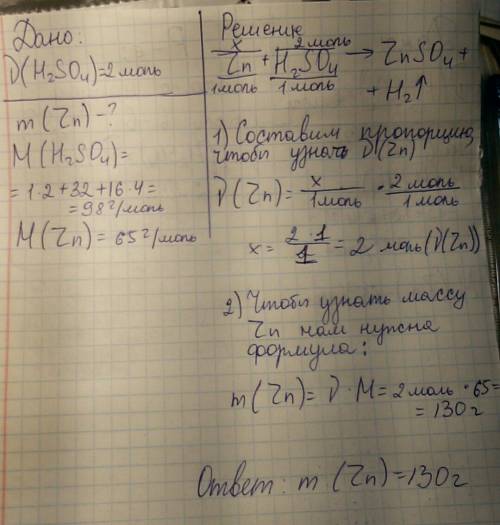 Дано:
ν(H₂SO₄)=2моль
m(Zn)-?
M(H₂SO₄)=
=1·2+32+16·4=
=98г/моль
M(Zn)=65г/моль
Решение
x 2моль
Zn + H₂SO₄ → ZnSO₄ +
1моль 1моль
+ H₂↑
1) Составим пропорцию,
чтобы узнать ν(Zn)
ν(Zn) = x/1моль · 2моль/1моль
x = 2·1/1 = 2 моль(ν(Zn))
2) Чтобы узнать массу
Zn нам нужна
формула:
m(Zn) = ν · M = 2моль · 65=
= 130г
Ответ: m(Zn)=130г